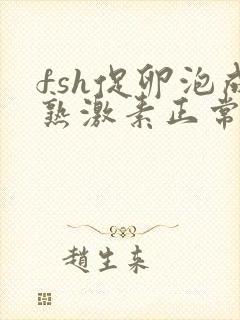 fsh促卵泡成
熟激素正常
趙生来